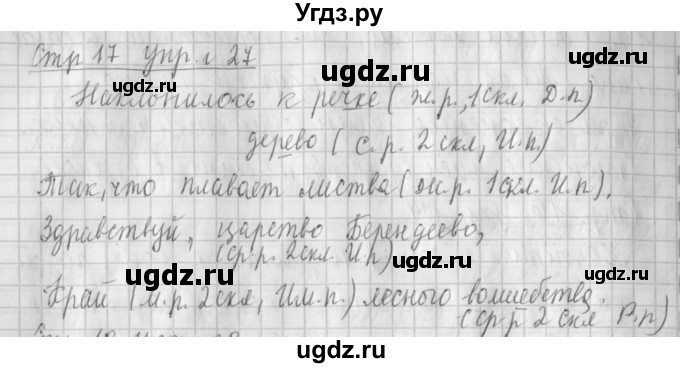 Угдз.ру
Стр 17 упр. 27
ugdz.ru
ugdz.ru
Наклонилось к речке (ж.р., 1 скл, Д.п)
ugdz.ru
дерево (с.р. 2 скл, И.п.)
Так, что плавает листва (ж.р. 1 скл. И.п),
ugdz.ru
Здравствуй, царство Берендеево,
(ср р. 2 скл. И п)
ugdz.ru
ugdz.ru
Край (м.р. 2 скл, Им.п.) лесного волшебства.
(ср р 2 скл Р.п)
ugdz.ru